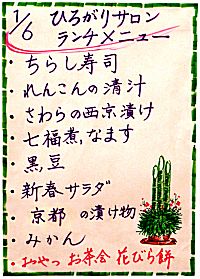 1/6 ひろがりサロン
ランチメニュー
・ちらし寿司
・れんこんの清汁
・さわらの西京漬け
・七福煮,なます
・黒豆
・新春サラダ
・京都の漬け物
・みかん
・おやつ お茶会 花びら餅